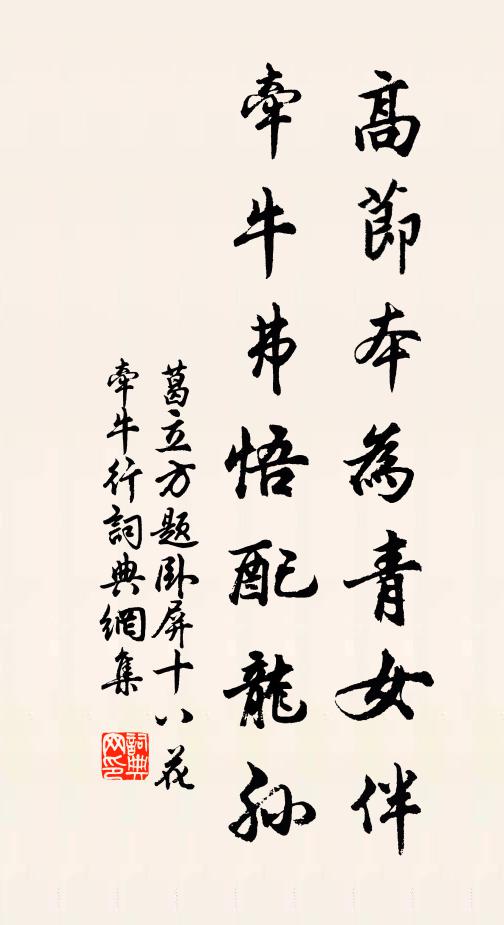 高節本為青女伴
牽牛弗悟配龍孫
葛立方題卧屏十八花
牽牛行詞典網集
詞典网印